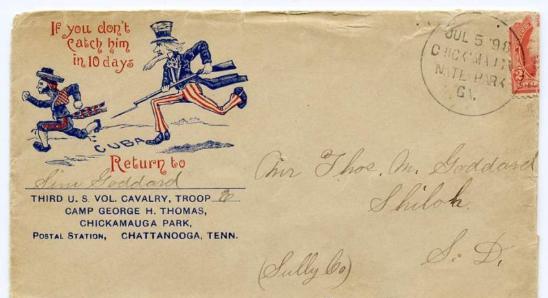 If you don't
Catch him
in 10 days
CUBA
Return to
Sim Goddard
THIRD U. S. VOL. CAVALRY, TROOP
CAMP GEORGE H. THOMAS,
CHICKAMAUGA PARK,
POSTAL STATION, CHATTANOOGA, TENN.
JUL 5 '98
NAT'L PARK
GA.
2
Mr Thos. M. Goddard
Shiloh
S. D.
(Sully Co)